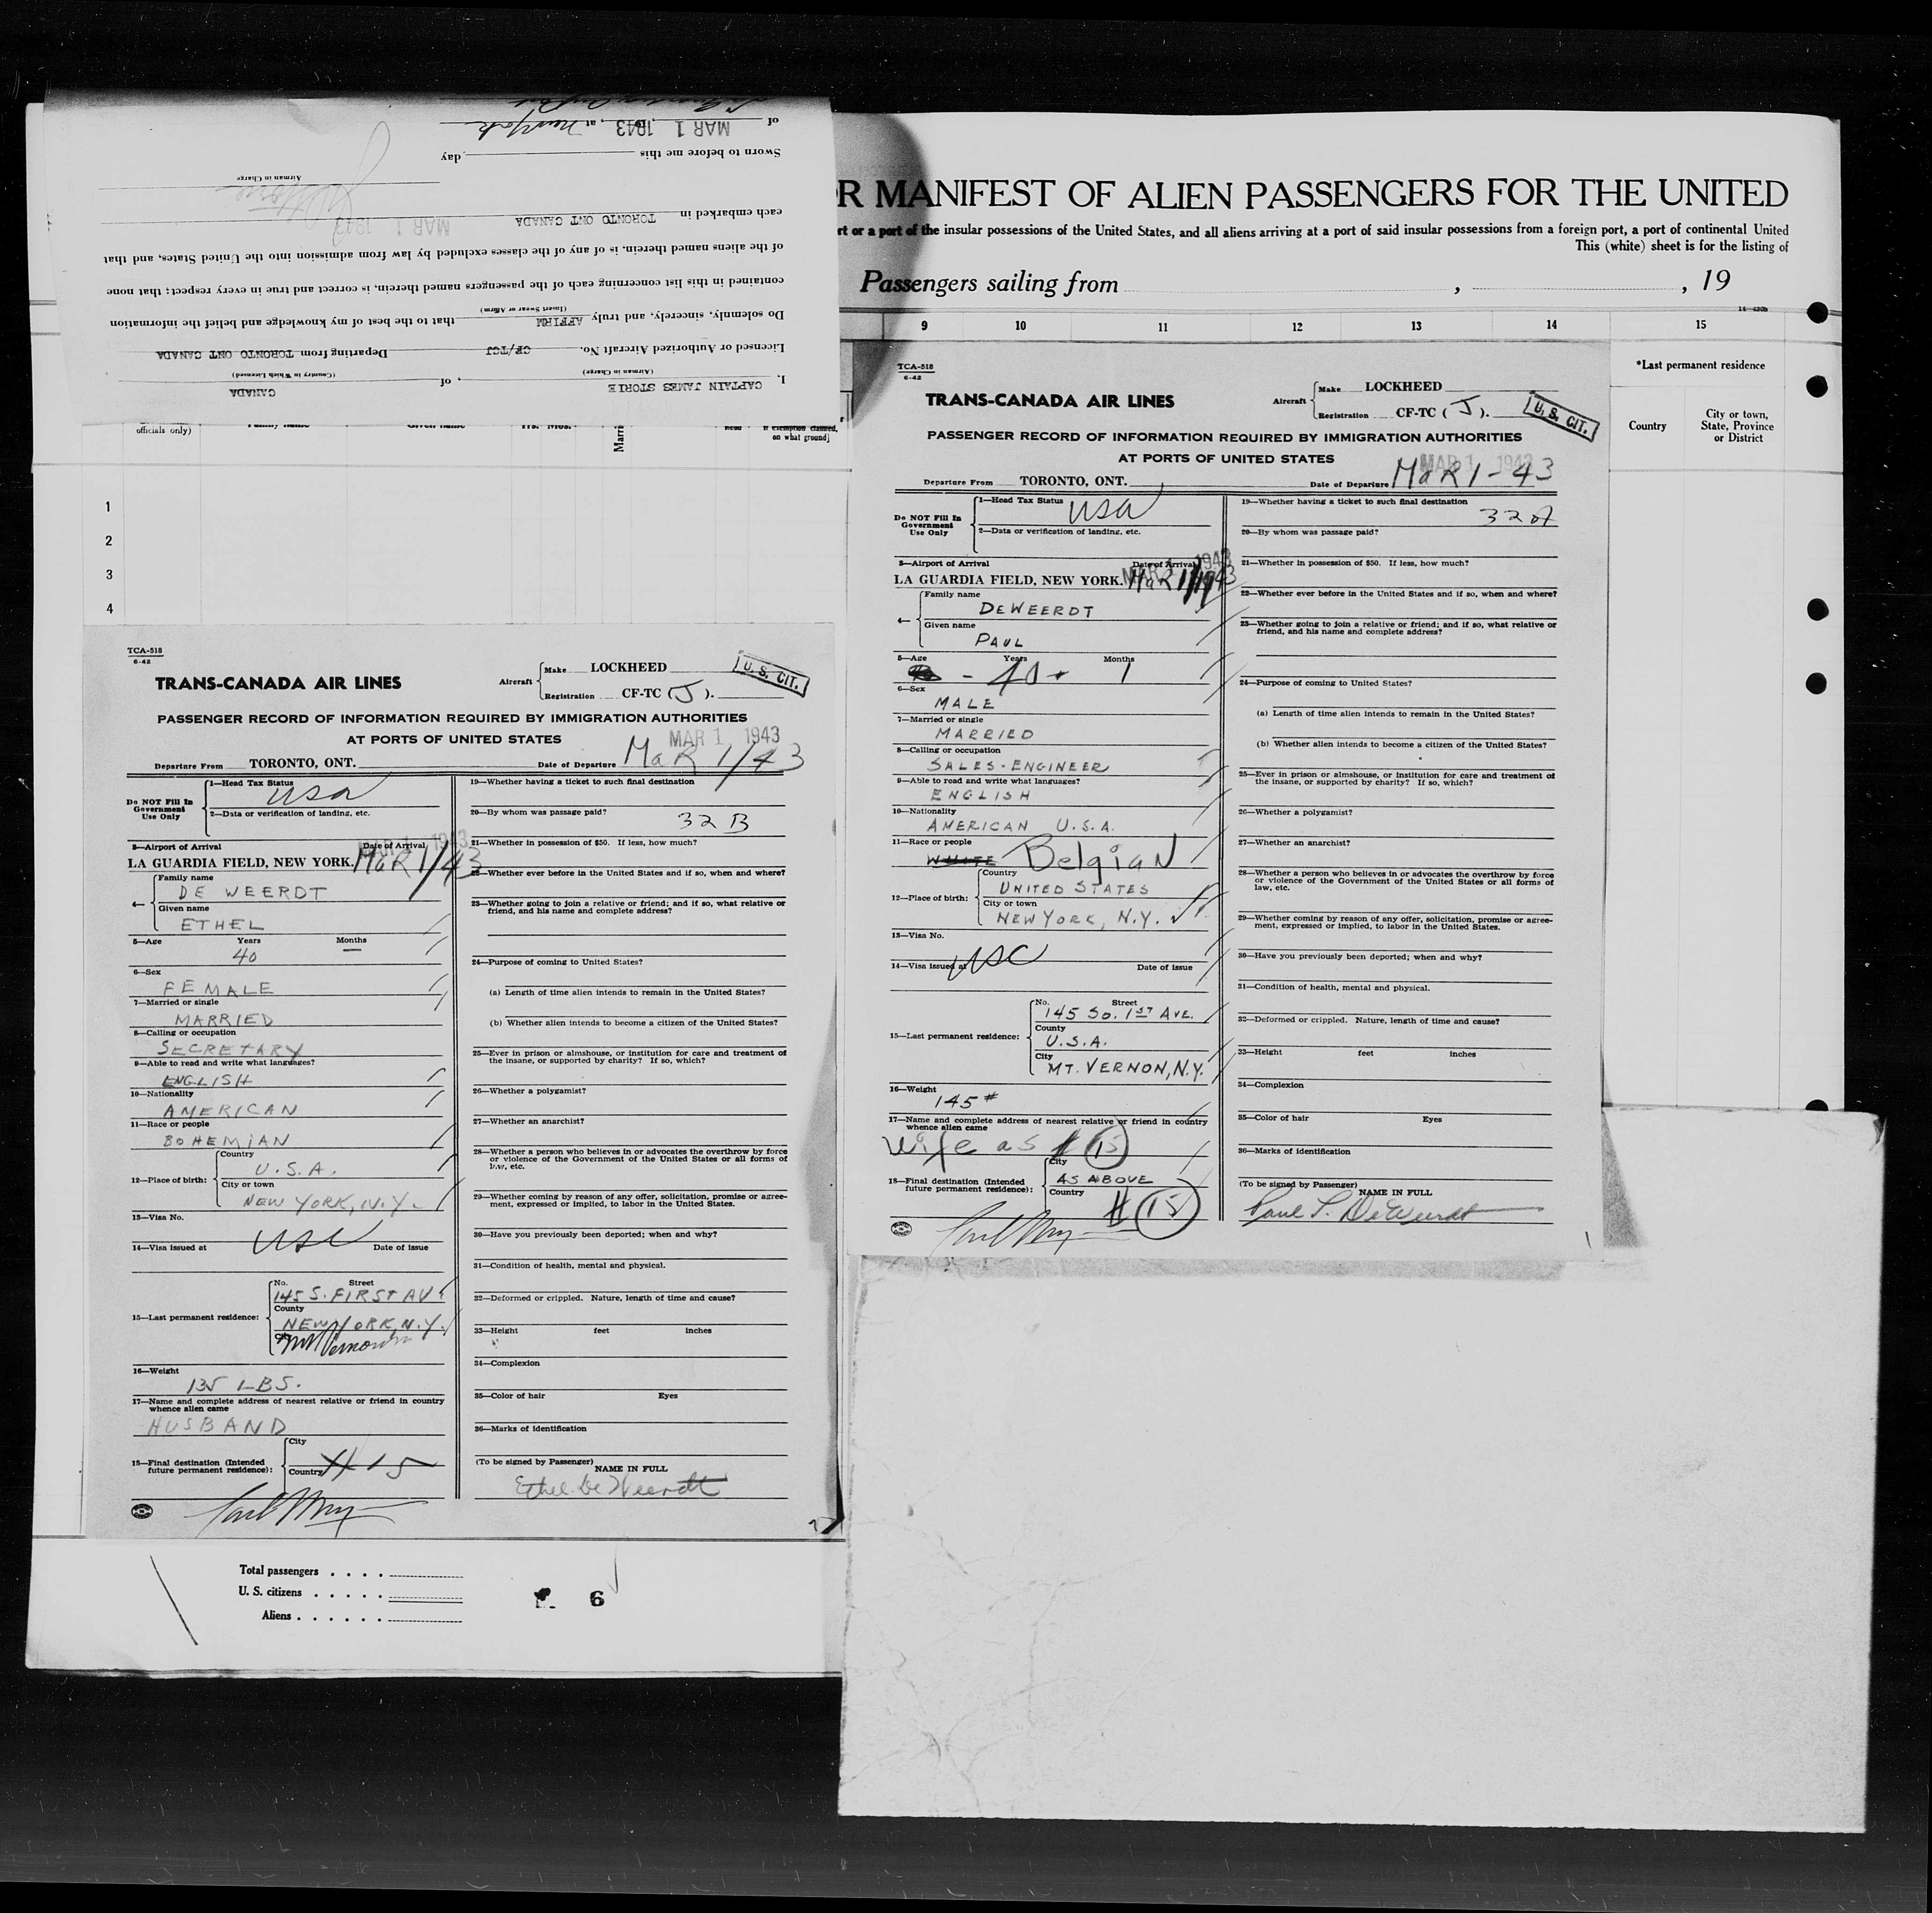 I, CAPTAIN JAMES STORIE, of CANADA
(Airman in Charge) (Country in Which Licensed)
Licensed or Authorized Aircraft No. CF/TCJ Departing from TORONTO ONT CANADA
Do solemnly, sincerely, and truly AFFIRM that to the best of my knowledge and belief the information
(Insert Swear or Affirm)
contained in this list concerning each of the passengers named therein, is correct and true in every respect; that none
of the aliens named therein, is of any of the classes excluded by law from admission into the United States, and that
each embarked in TORONTO ONT CANADA MAR 1 1943
Airman in Charge
Sworn to before me this day
of MAR 1 1943, at New York
R MANIFEST OF ALIEN PASSENGERS FOR THE UNITED
rt or a port of the insular possessions of the United States, and all aliens arriving at a port of said insular possessions from a foreign port, a port of continental United
This (white) sheet is for the listing of
Passengers sailing from , , 19
9 10 11 12 13 14 15
*Last permanent residence
Country
City or town, State, Province or District
officials only)
Family name Given name Yrs. Mos.
Marri
Read
If exemption claimed,
on what ground]
1
2
3
4
TCA-518
6-42
TRANS-CANADA AIR LINES
Aircraft
Make LOCKHEED
Registration CF-TC ( J ).
U. S. CIT.
PASSENGER RECORD OF INFORMATION REQUIRED BY IMMIGRATION AUTHORITIES
AT PORTS OF UNITED STATES
MAR 1 1943
Departure From TORONTO, ONT. Date of Departure MAR 1/43
Do NOT Fill In
Government
Use Only
1—Head Tax Status USA
2—Data or verification of landing, etc.
3—Airport of Arrival Date of Arrival
LA GUARDIA FIELD, NEW YORK. MAR 1/43
4— Family name
DE WEERDT
Given name
ETHEL
5—Age Years Months
40 —
6—Sex
FEMALE
7—Married or single
MARRIED
8—Calling or occupation
SECRETARY
9—Able to read and write what languages?
ENGLISH
10—Nationality
AMERICAN
11—Race or people
BOHEMIAN
12—Place of birth:
Country
U.S.A.
City or town
NEW YORK, N.Y.
13—Visa No.
USC
14—Visa issued at Date of issue
15—Last permanent residence:
No. Street
145 S. FIRST AV.
County
NEW YORK, N.Y.
City
Mt Vernon
16—Weight
135 LBS.
17—Name and complete address of nearest relative or friend in country
whence alien came
HUSBAND
18—Final destination (Intended
future permanent residence):
City
Country # 15
19—Whether having a ticket to such final destination
20—By whom was passage paid?
32 B
21—Whether in possession of $50. If less, how much?
22—Whether ever before in the United States and if so, when and where?
23—Whether going to join a relative or friend; and if so, what relative or
friend, and his name and complete address?
24—Purpose of coming to United States?
(a) Length of time alien intends to remain in the United States?
(b) Whether alien intends to become a citizen of the United States?
25—Ever in prison or almshouse, or institution for care and treatment of
the insane, or supported by charity? If so, which?
26—Whether a polygamist?
27—Whether an anarchist?
28—Whether a person who believes in or advocates the overthrow by force
or violence of the Government of the United States or all forms of
law, etc.
29—Whether coming by reason of any offer, solicitation, promise or agree-
ment, expressed or implied, to labor in the United States.
30—Have you previously been deported; when and why?
31—Condition of health, mental and physical.
32—Deformed or crippled. Nature, length of time and cause?
33—Height feet inches
34—Complexion
35—Color of hair Eyes
36—Marks of identification
(To be signed by Passenger)
NAME IN FULL
Ethel De Weerdt
Total passengers . . . .
U. S. citizens . . . . .
Aliens . . . . . .
6
TCA-518
6-42
TRANS-CANADA AIR LINES
Aircraft
Make LOCKHEED
Registration CF-TC ( J ).
U. S. CIT.
PASSENGER RECORD OF INFORMATION REQUIRED BY IMMIGRATION AUTHORITIES
AT PORTS OF UNITED STATES
MAR 1 1943
Departure From TORONTO, ONT. Date of Departure MAR 1-43
Do NOT Fill In
Government
Use Only
1—Head Tax Status USA
2—Data or verification of landing, etc.
3—Airport of Arrival Date of Arrival
LA GUARDIA FIELD, NEW YORK. MAR 1/1943
4— Family name
DEWEERDT
Given name
PAUL
5—Age Years Months
- 40 + 1
6—Sex
MALE
7—Married or single
MARRIED
8—Calling or occupation
SALES-ENGINEER
9—Able to read and write what languages?
ENGLISH
10—Nationality
AMERICAN U.S.A.
11—Race or people
WHITE Belgian
12—Place of birth:
Country
UNITED STATES
City or town
NEW YORK, N.Y.
13—Visa No.
USC
14—Visa issued at Date of issue
15—Last permanent residence:
No. Street
145 SO. 1ST AVE.
County
U.S.A.
City
MT. VERNON, N.Y.
16—Weight
145 #
17—Name and complete address of nearest relative or friend in country
whence alien came
Wife as # 15
18—Final destination (Intended
future permanent residence):
City
AS ABOVE
Country
# 15
19—Whether having a ticket to such final destination
32 A
20—By whom was passage paid?
21—Whether in possession of $50. If less, how much?
22—Whether ever before in the United States and if so, when and where?
23—Whether going to join a relative or friend; and if so, what relative or
friend, and his name and complete address?
24—Purpose of coming to United States?
(a) Length of time alien intends to remain in the United States?
(b) Whether alien intends to become a citizen of the United States?
25—Ever in prison or almshouse, or institution for care and treatment of
the insane, or supported by charity? If so, which?
26—Whether a polygamist?
27—Whether an anarchist?
28—Whether a person who believes in or advocates the overthrow by force
or violence of the Government of the United States or all forms of
law, etc.
29—Whether coming by reason of any offer, solicitation, promise or agree-
ment, expressed or implied, to labor in the United States.
30—Have you previously been deported; when and why?
31—Condition of health, mental and physical.
32—Deformed or crippled. Nature, length of time and cause?
33—Height feet inches
34—Complexion
35—Color of hair Eyes
36—Marks of identification
(To be signed by Passenger)
NAME IN FULL
Paul L. DeWeerdt